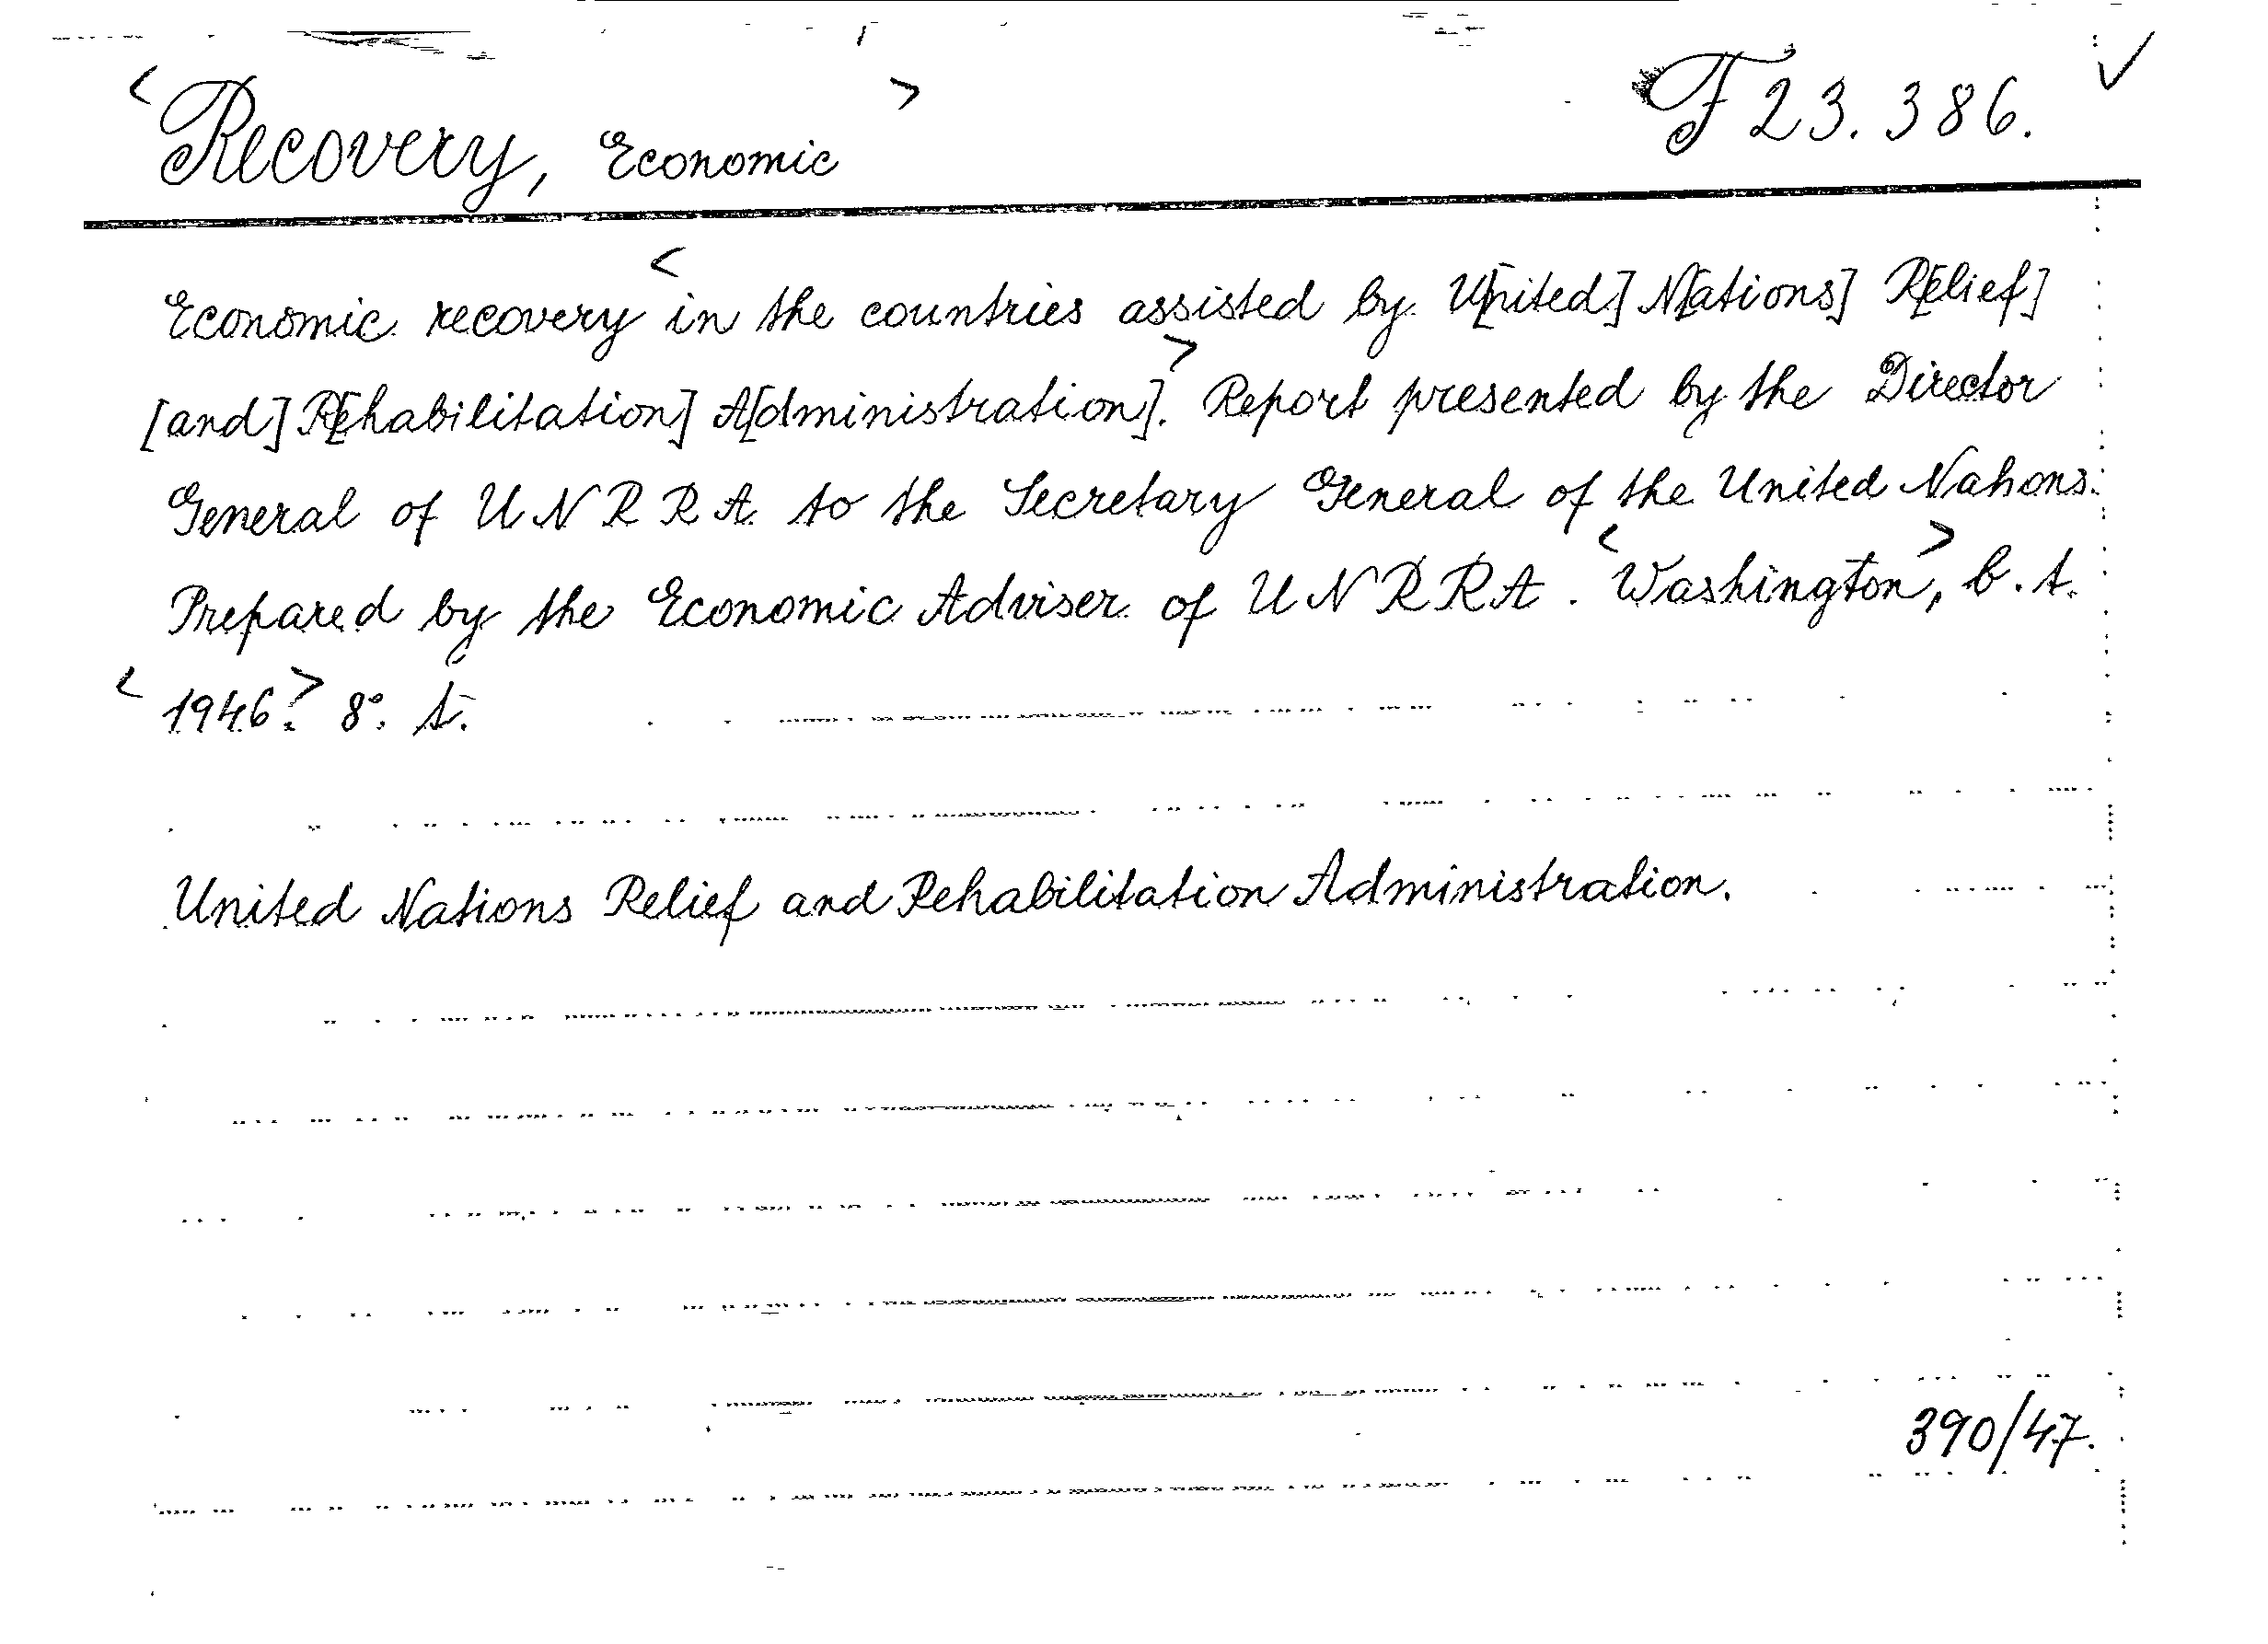 <Recovery, Economic> F 23.386. ✓
Economic recovery <in the countries assisted by U[nited] N[ations] R[elief]
[and] R[ehabilitation] A[dministration].> Report presented by the Director
General of UNRRA to the Secretary General of the United Nations.
Prepared by the Economic Adviser of UNRRA. <Washington>, b.t.
<1946.> 8°. t.
United Nations Relief and Rehabilitation Administration.
390/47.